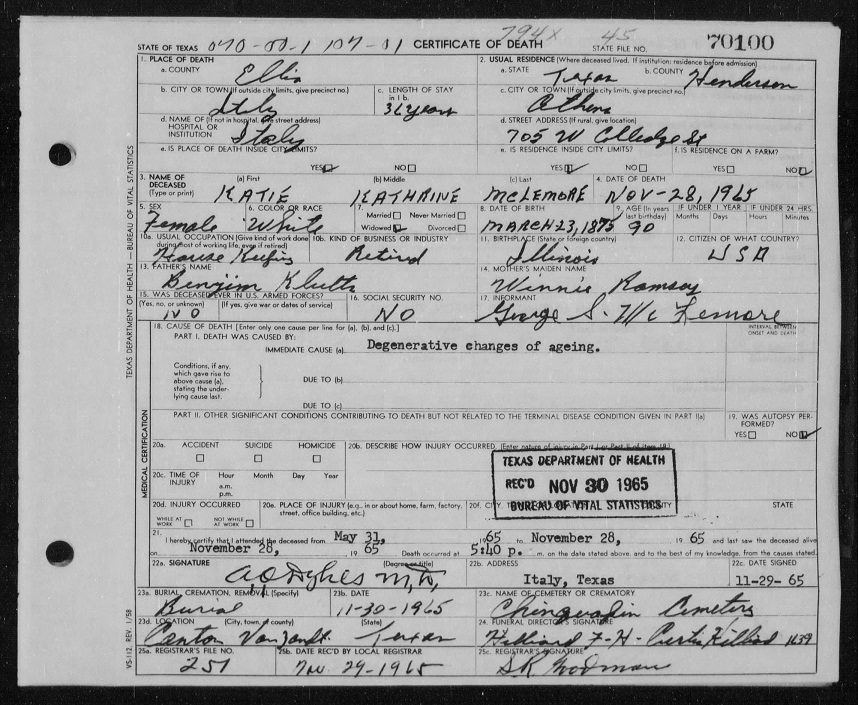 794X 45
STATE OF TEXAS 070-00-1 107-01 CERTIFICATE OF DEATH STATE FILE NO. 70100
1. PLACE OF DEATH
a. COUNTY Ellis
2. USUAL RESIDENCE (Where deceased lived. If institution: residence before admission)
a. STATE Texas b. COUNTY Henderson
b. CITY OR TOWN (If outside city limits, give precinct no.) Italy
c. LENGTH OF STAY in 1 b.
c. CITY OR TOWN (If outside city limits, give precinct no.) Athens
d. NAME OF (If not in hospital, give street address) HOSPITAL OR INSTITUTION Italy
d. STREET ADDRESS (If rural, give location) 705 W Colledge St
e. IS PLACE OF DEATH INSIDE CITY LIMITS? YES NO
e. IS RESIDENCE INSIDE CITY LIMITS? YES NO
f. IS RESIDENCE ON A FARM? YES NO
3. NAME OF DECEASED (Type or print)
(a) First KATIE (b) Middle KATHRINE (c) Last McLEMORE
4. DATE OF DEATH NOV-28, 1965
5. SEX Female
6. COLOR OR RACE White
7. Married Never Married
Widowed Divorced
8. DATE OF BIRTH MARCH 23, 1875
9. AGE (In years last birthday) 90
IF UNDER 1 YEAR Months Days
IF UNDER 24 HRS. Hours Minutes
10a. USUAL OCCUPATION (Give kind of work done during most of working life, even if retired)
10b. KIND OF BUSINESS OR INDUSTRY Retired
11. BIRTHPLACE (State or foreign country) Illinois
12. CITIZEN OF WHAT COUNTRY? USA
13. FATHER'S NAME Benjim Klutts
14. MOTHER'S MAIDEN NAME Winnie Ramsay
15. WAS DECEASED EVER IN U.S. ARMED FORCES?
(Yes, no, or unknown) (If yes, give war or dates of service) NO
16. SOCIAL SECURITY NO. NO
17. INFORMANT George S. McLemore
18. CAUSE OF DEATH [Enter only one cause per line for (a), (b), and (c).]
INTERVAL BETWEEN ONSET AND DEATH
PART I. DEATH WAS CAUSED BY:
IMMEDIATE CAUSE (a) Degenerative changes of ageing.
Conditions, if any, which gave rise to above cause (a), stating the underlying cause last.
DUE TO (b)
DUE TO (c)
PART II. OTHER SIGNIFICANT CONDITIONS CONTRIBUTING TO DEATH BUT NOT RELATED TO THE TERMINAL DISEASE CONDITION GIVEN IN PART I(a)
19. WAS AUTOPSY PERFORMED? YES NO
20a. ACCIDENT SUICIDE HOMICIDE
20b. DESCRIBE HOW INJURY OCCURRED. (Enter nature of injury in Part I or Part II of item 18.)
20c. TIME OF INJURY Hour a.m. p.m. Month Day Year
TEXAS DEPARTMENT OF HEALTH
REC'D NOV 30 1965
BUREAU OF VITAL STATISTICS
20d. INJURY OCCURRED
WHILE AT WORK NOT WHILE AT WORK
20e. PLACE OF INJURY (e.g., in or about home, farm, factory, street, office building, etc.)
20f. CITY, STATE
21. I hereby certify that I attended the deceased from May 31, 1965 to November 28, 1965 and last saw the deceased alive
on November 28, 1965 Death occurred at 5:40 p. m. on the date stated above, and to the best of my knowledge, from the causes stated.
22a. SIGNATURE (Degree or title) A.O. Dykes M.D.
22b. ADDRESS Italy, Texas
22c. DATE SIGNED 11-29-65
23a. BURIAL, CREMATION, REMOVAL (Specify) Burial
23b. DATE 11-30-1965
23c. NAME OF CEMETERY OR CREMATORY Cemetery
23d. LOCATION (City, town, or county) (State) Canton Van Zandt Texas
24. FUNERAL DIRECTOR'S SIGNATURE Hilliard F-H- Curtis Hilliard
25a. REGISTRAR'S FILE NO. 251
25b. DATE REC'D BY LOCAL REGISTRAR Nov. 29-1965
25c. REGISTRAR'S SIGNATURE
TEXAS DEPARTMENT OF HEALTH — BUREAU OF VITAL STATISTICS
MEDICAL CERTIFICATION
VS-112, REV. 1/58